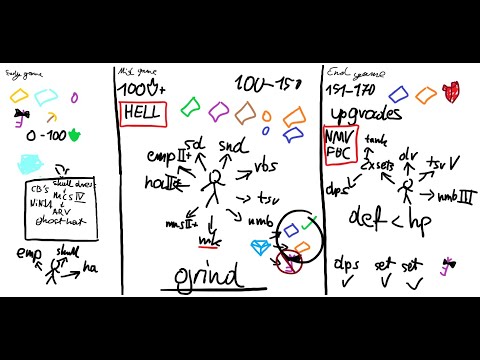 Early game
0-100
skull dives
CB's MCS IV
NiNJA
ARV
ghost hat
emp skull
ha
Mid game
100+
100-150
HELL
sd
snd
emp II+
vbs
ha II+
tsv
mcs II+
nmb
mk
grind
End game
151-170
upgrades
NMV
FBC
tank
exsets
dv
tsv V
dps
nmb III
def < hp
dps set set